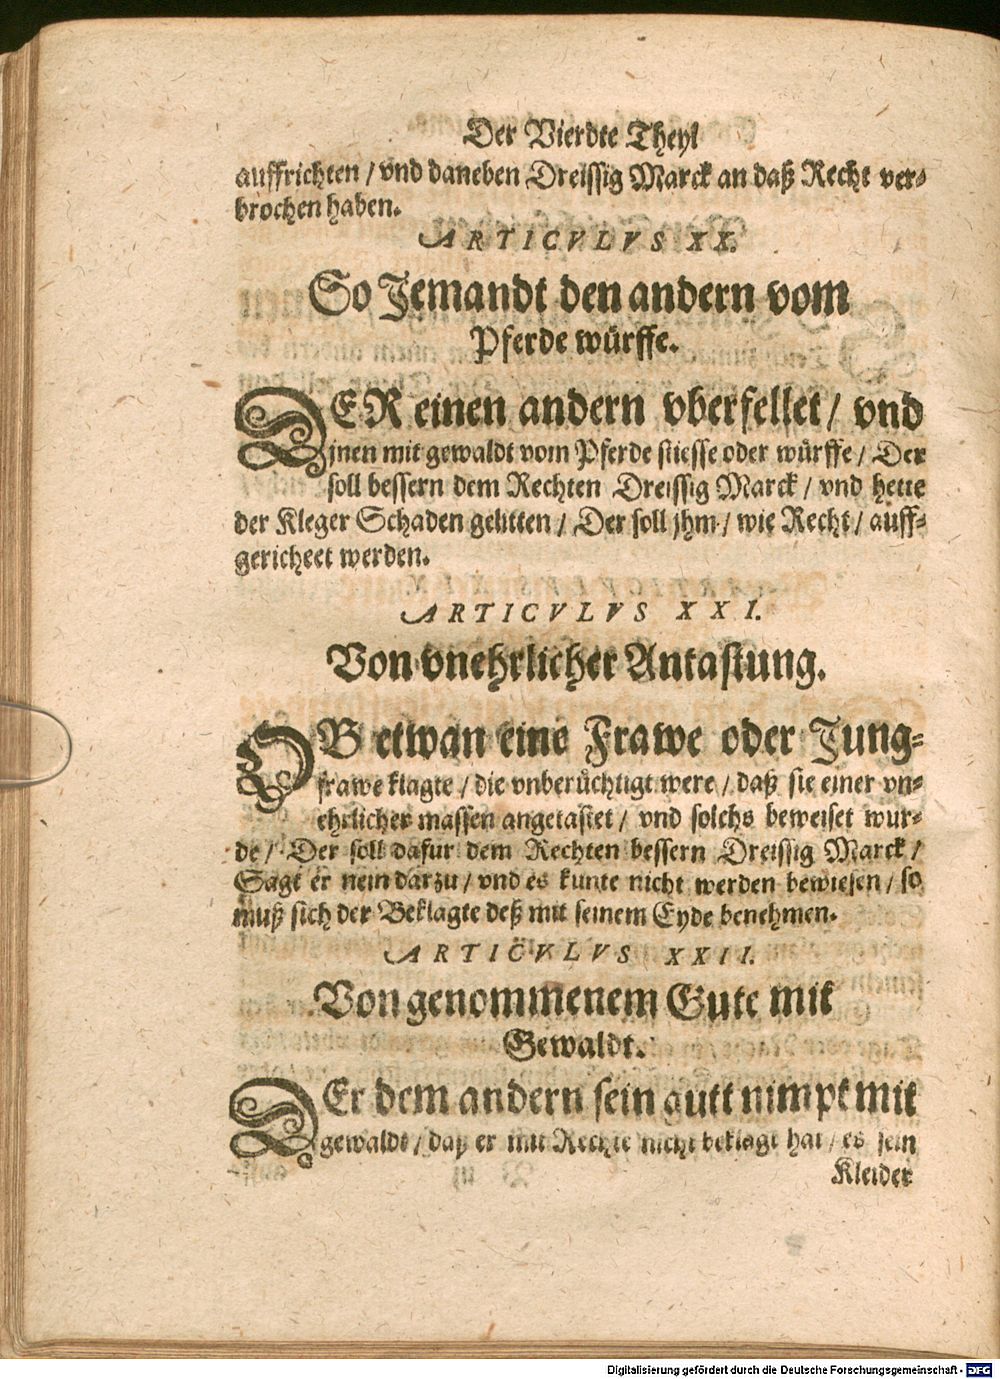 Der Vierdte Theyl
auffrichten / vnd daneben Dreissig Marck an daß Recht ver-
brochen haben.
ARTICVLVS XX.
So Jemandt den andern vom
Pferde würffe.
DER einen andern vberfellet / vnd
jnen mit gewaldt vom Pferde stiesse oder würffe / Der
soll bessern dem Rechten Dreissig Marck / vnd hette
der Kleger Schaden gelitten / Der soll jhm / wie Recht / auff-
gericheet werden.
ARTICVLVS XXI.
Von vnehrlicher Antastung.
OB etwan eine Frawe oder Jung-
frawe klagte / die vnberüchtigt were / daß sie einer vn-
ehrlicher massen angetastet / vnd solchs beweiset wur-
de / Der soll dafur dem Rechten bessern Dreissig Marck /
Sagt er nein darzu / vnd es kunte nicht werden bewiesen / so
muß sich der Beklagte deß mit seinem Eyde benehmen.
ARTICVLVS XXII.
Von genommenem Gute mit
Gewaldt.
DEr dem andern sein gutt nimpt mit
gewaldt / daß er mit Rechte nicht beklagt hat / es sein
Kleider
Digitalisierung gefördert durch die Deutsche Forschungsgemeinschaft - DFG